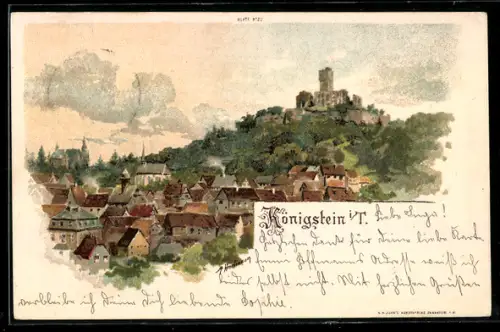 Königstein i/T.
Liebe Olga!
Herzlichen Dank für Deine liebe Karte
Adresse weiß ich
leider selbst nicht. Mit herzlichen Grüßen
verbleibe ich Deine Dich liebende Sophie.